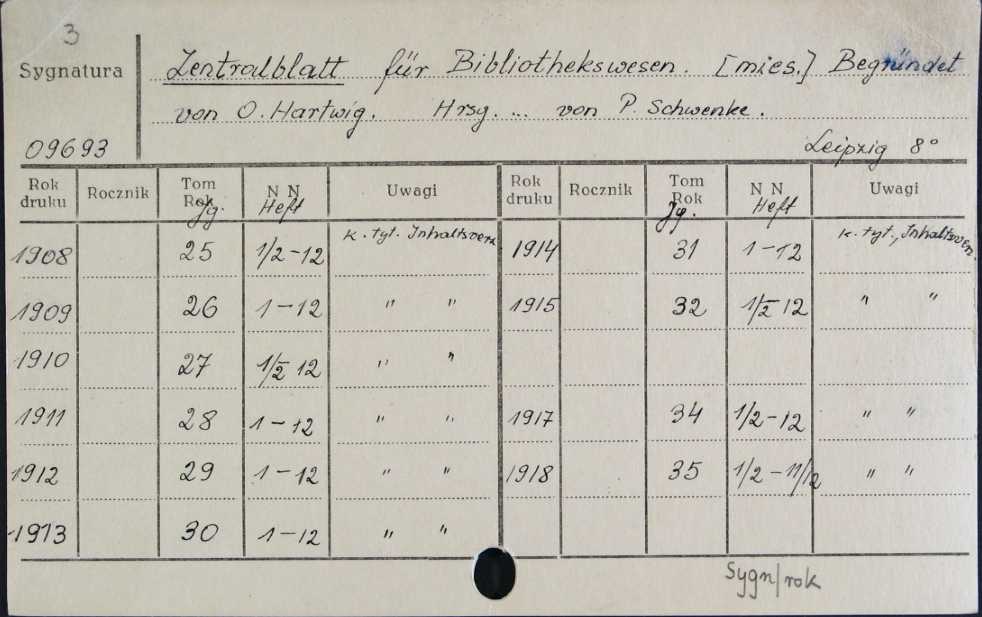 3
Sygnatura
Zentralblatt für Bibliothekswesen. [mies.] Begründet
von O. Hartwig. Hrsg. ... von P. Schwenke.
09693
Leipzig 8°
Rok druku Rocznik Tom Rok Jg. N N Heft Uwagi Rok druku Rocznik Tom Rok Jg. N N Heft Uwagi
1908 25 1/2-12 k. tyt. Inhaltsverz 1914 31 1-12 k. tyt., Inhaltsverz.
1909 26 1-12 " " 1915 32 1/2 12 " "
1910 27 1/2 12 " "
1911 28 1-12 " " 1917 34 1/2-12 " "
1912 29 1-12 " " 1918 35 1/2-11/12 " "
1913 30 1-12 " "
Sygn/rok